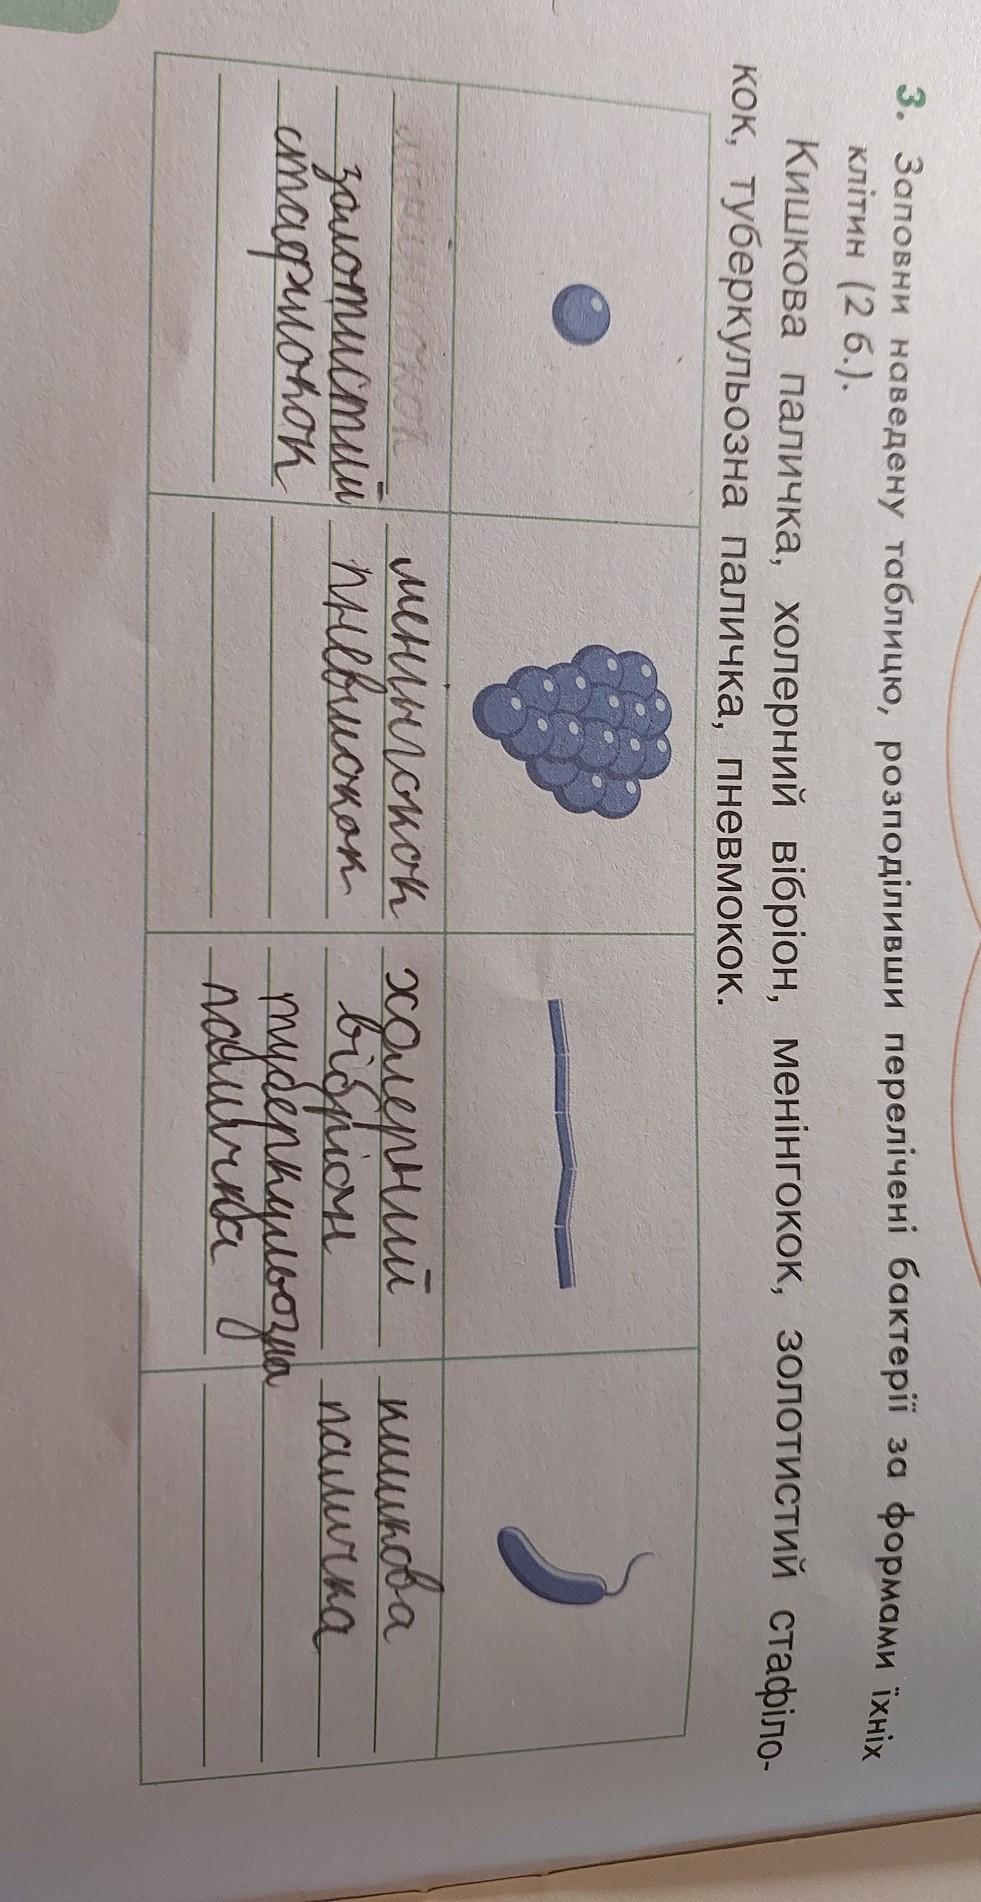 3. Заповни наведену таблицю, розподіливши перелічені бактерії за формами їхніх
клітин (2 б.).
Кишкова паличка, холерний вібріон, менінгокок, золотистий стафіло-
кок, туберкульозна паличка, пневмокок.
золотистий
стафилокок
менингокок
пневмокок
холерний
вібріон
туберкульозна
паличка
кишкова
паличка